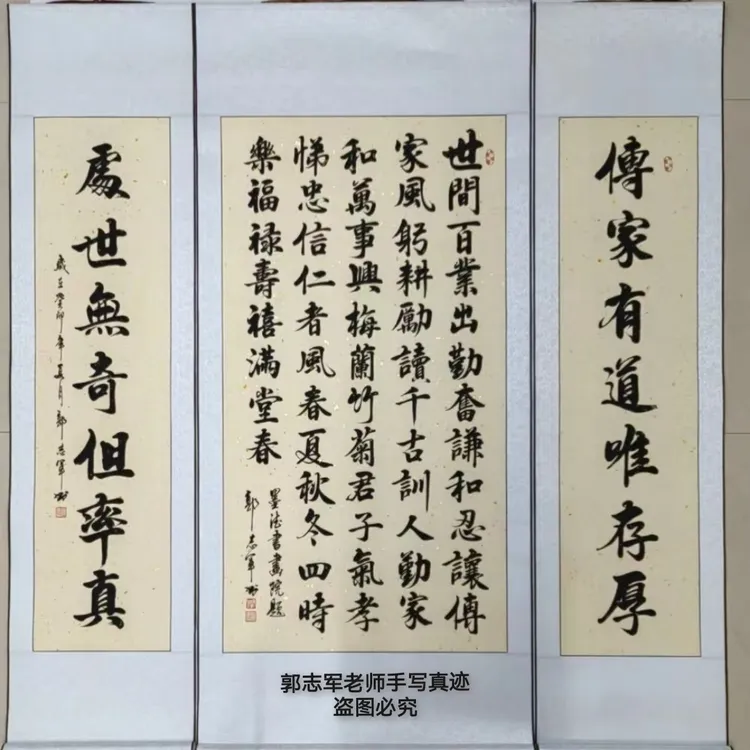 傳家有道唯存厚
世間百業出勤奮謙和忍讓傳
家風躬耕勵讀千古訓人勤家
和萬事興梅蘭竹菊君子氣孝
悌忠信仁者風春夏秋冬四時
樂福禄壽禧滿堂春
書畫院題
郭志軍书
處世無奇但率真
歲在癸卯年夏月郭志軍书
郭志军老师手写真迹
盗图必究